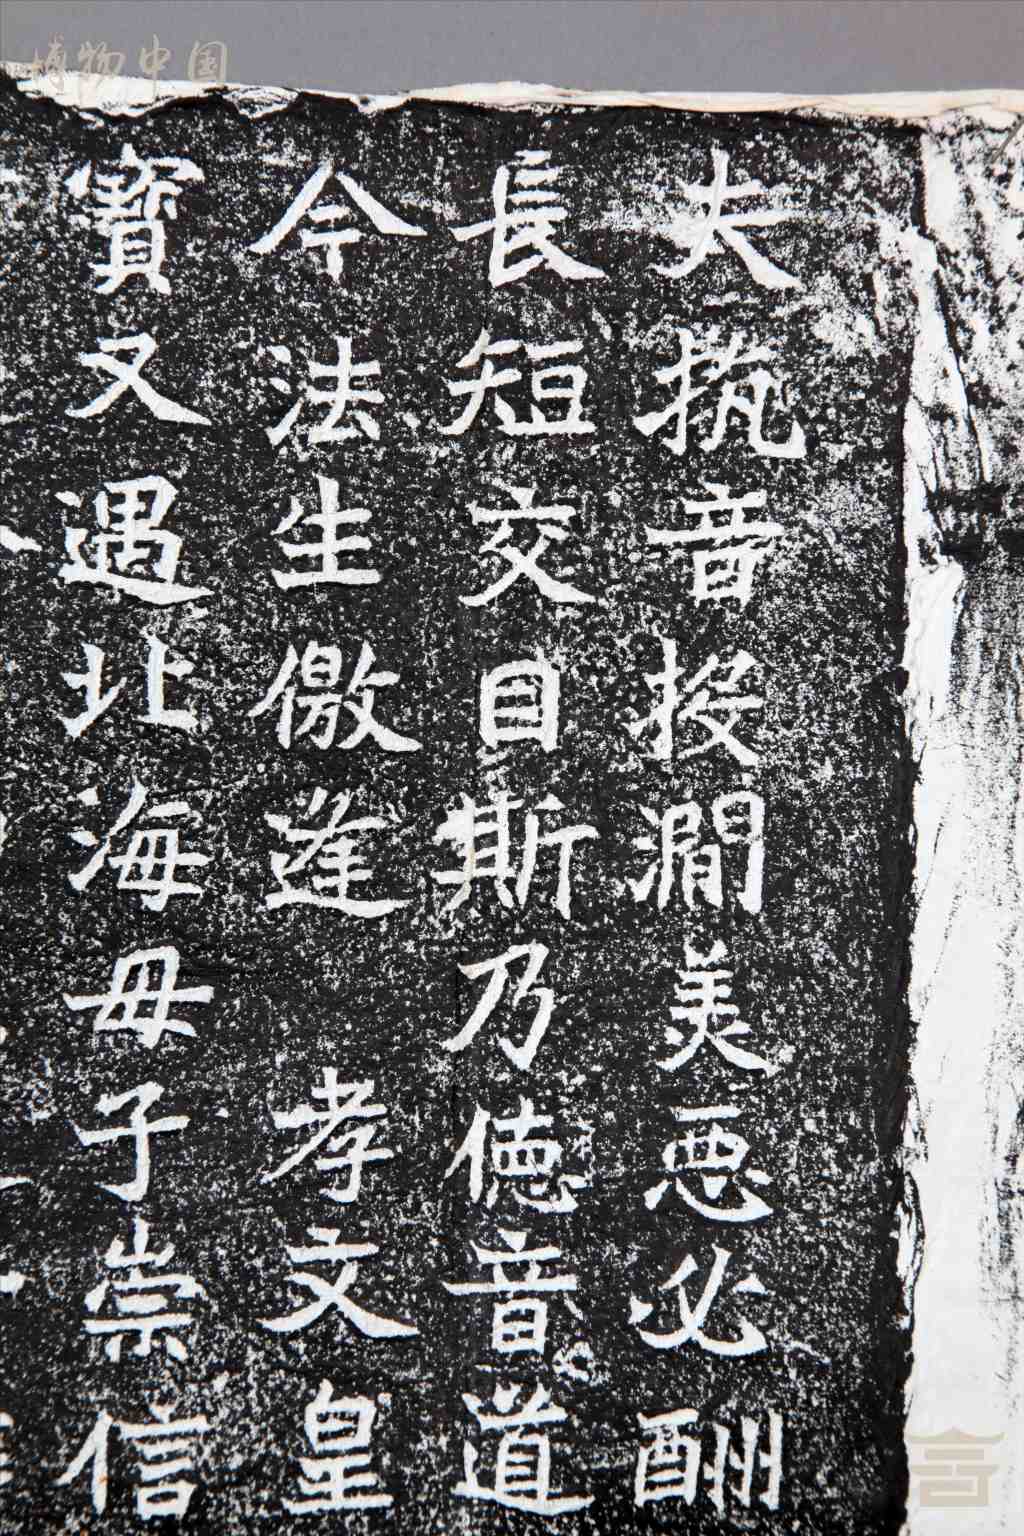 博物中国
夫抚音投澗美惡必酬
長短交目斯乃德音道
今法生儌逢孝文皇
寳又遇北海母子崇信